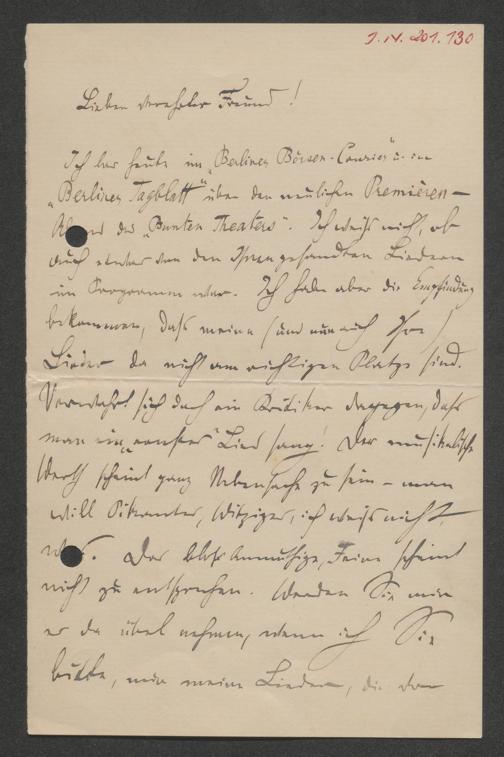 I. N. 201.130
Lieber verehrter Freund!
Ich las heute im „Berliner Börsen-Courier" u. im
„Berliner Tagblatt" über den neulichen Premièren-
Abend des „Bunten Theaters". Ich weiß nicht, ob
auch eines von den Ihnen gesandten Liedern
im Programm war. Ich habe aber die Empfindung
bekommen, daß meine (und nun auch Ihre)
Lieder da nicht am richtigen Platze sind.
Verwahrt sich doch ein Kritiker dagegen, daß
man ein „ernstes" Lied sang! Der musikalische
Werth scheint ganz Nebensache zu sein – man
will Pikantes, Witziges, ich weiß nicht,
was. Das bloß Anmuthige, Feine scheint
nicht zu entsprechen. Werden Sie mir
es da übel nehmen, wenn ich Sie
bitte, mir meine Lieder, die